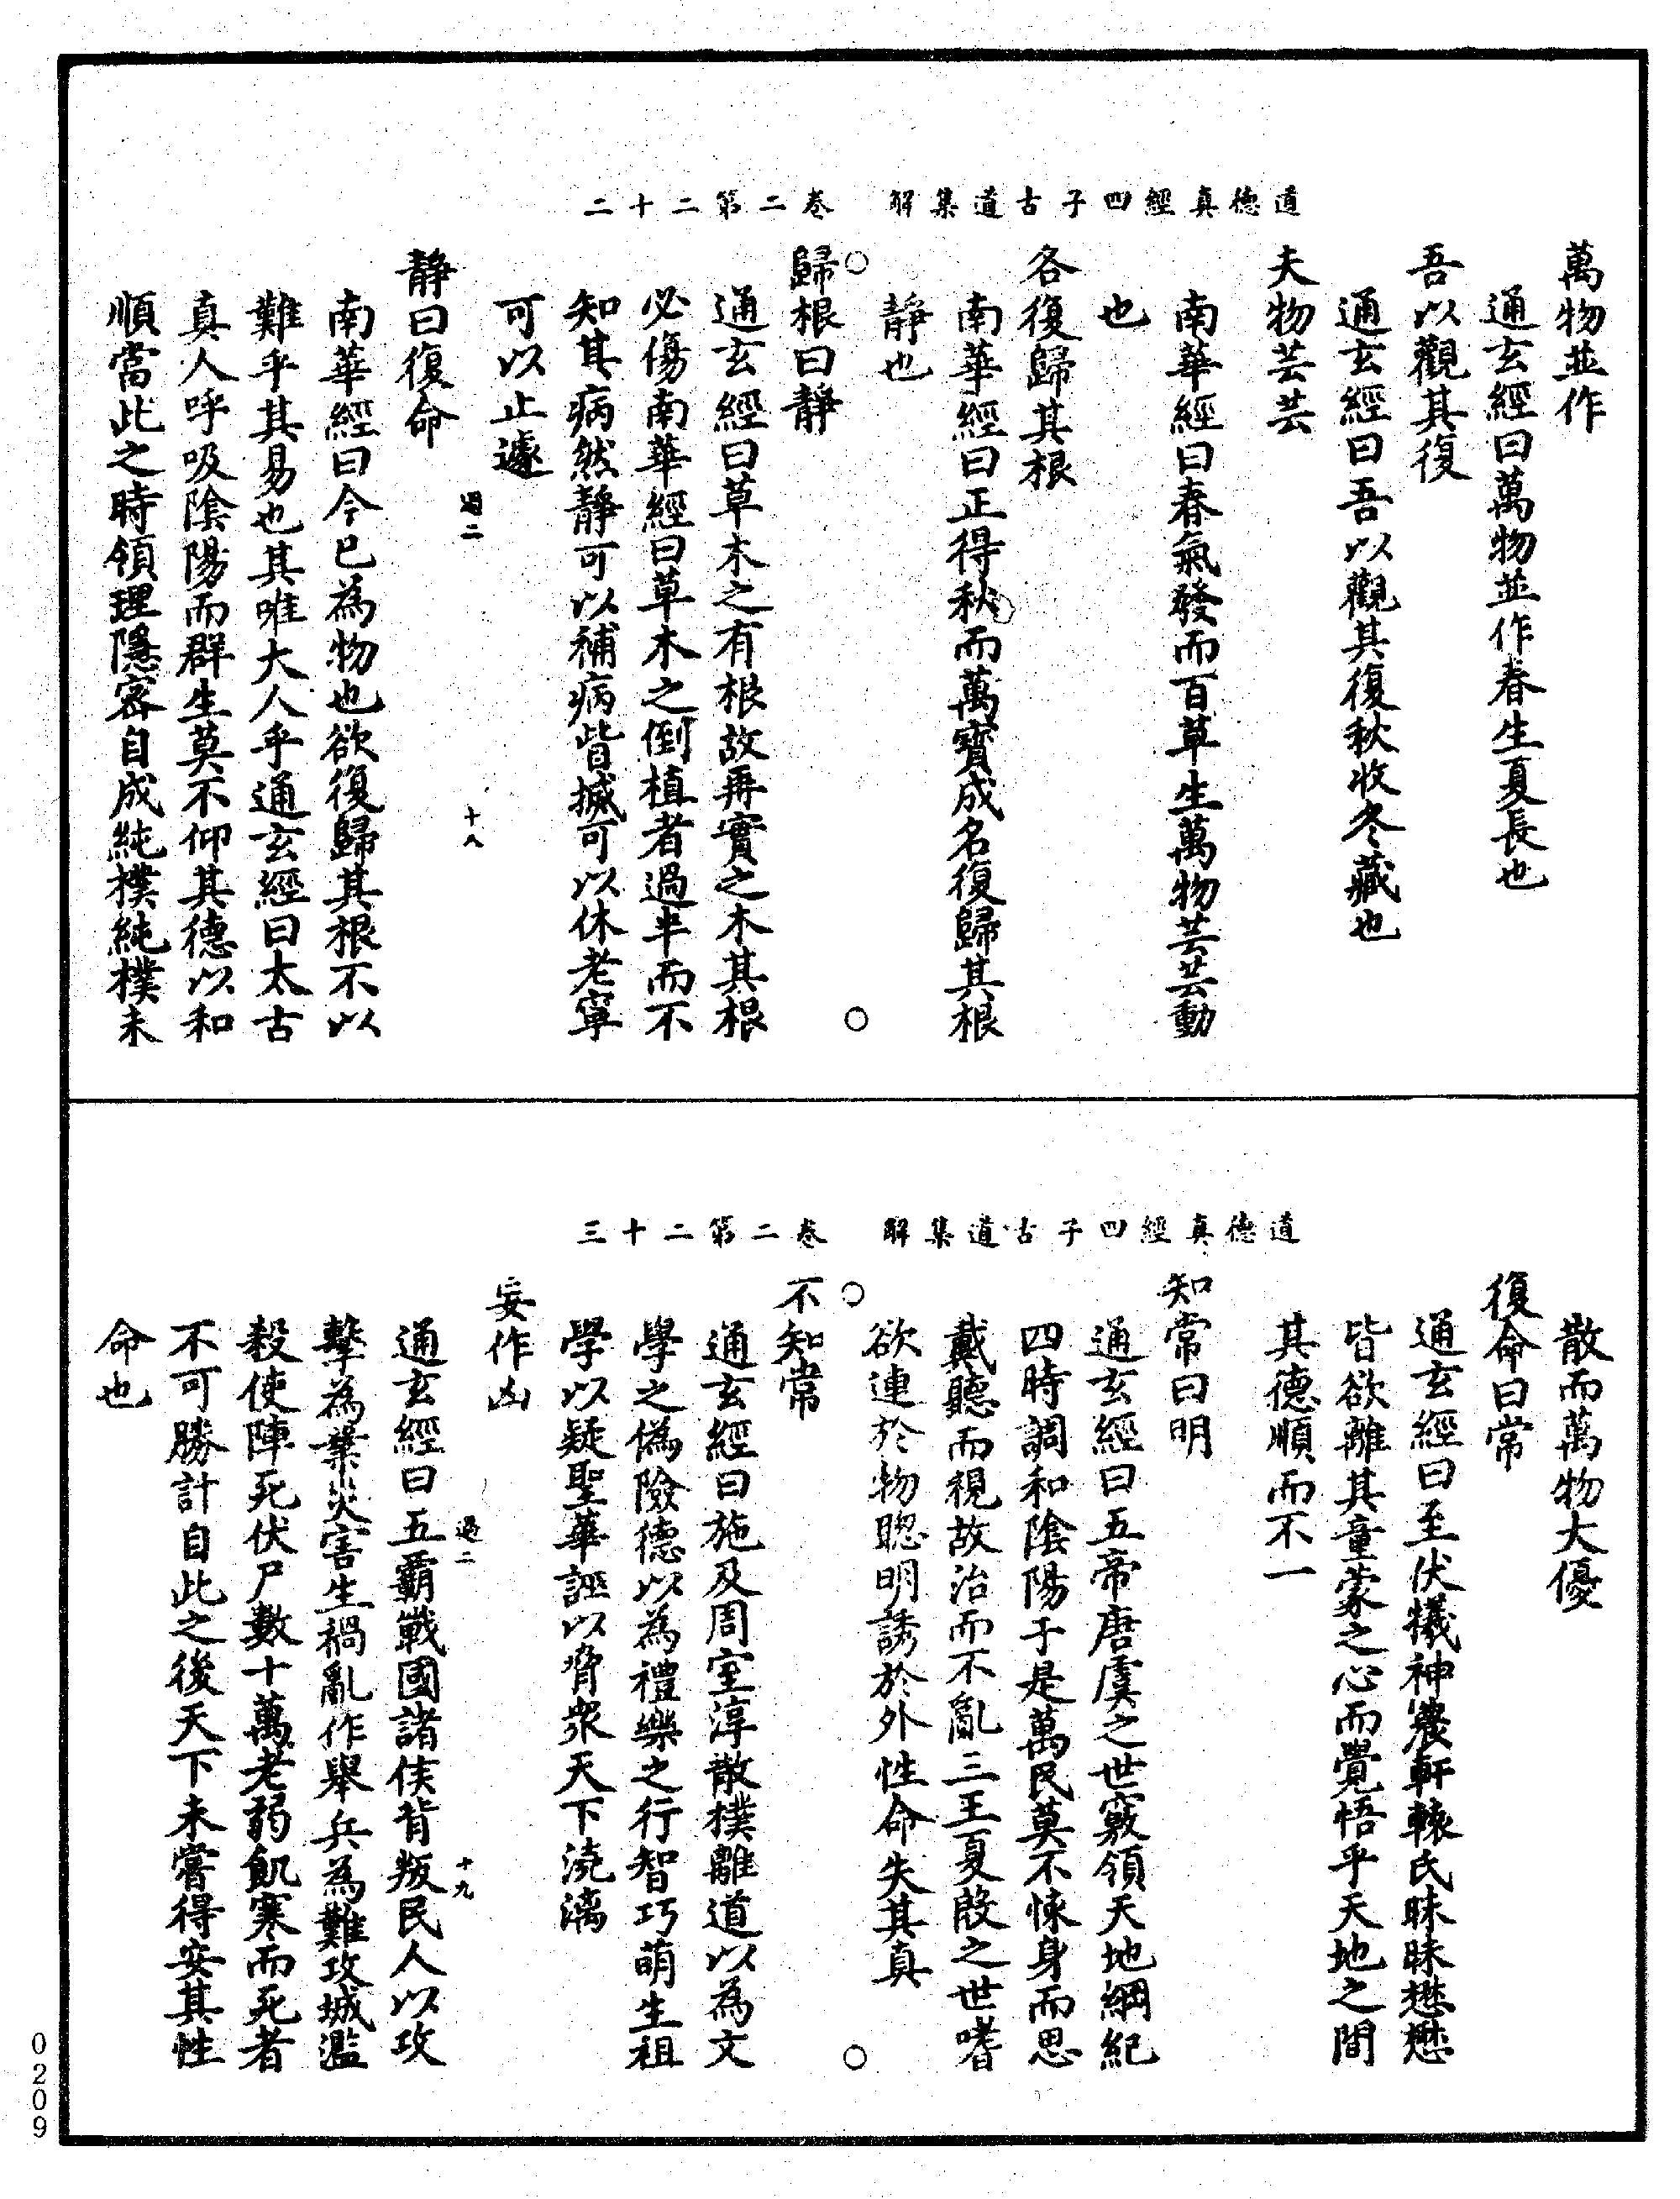 道德真經四子古道集解　卷二第二十二
萬物並作
通玄經曰萬物並作春生夏長也
吾以觀其復
通玄經曰吾以觀其復秋收冬藏也
夫物芸芸
南華經曰春氣發而百草生萬物芸芸動
也
各復歸其根
南華經曰正得秋而萬寶成名復歸其根
靜也
歸根曰靜
通玄經曰草木之有根故再實之木其根
必傷南華經曰草木之倒植者過半而不
知其病然靜可以補病眥搣可以休老寧
可以止遽
過二　十八
靜曰復命
南華經曰今已為物也欲復歸其根不以
難乎其易也其唯大人乎通玄經曰太古
真人呼吸陰陽而群生莫不仰其德以和
順當此之時領理隱密自成純樸純樸未
道德真經四子古道集解　卷二第二十三
散而萬物大優
復命曰常
通玄經曰至伏犧神農軒轅氏昧昧懋懋
皆欲離其童蒙之心而覺悟乎天地之間
其德順而不一
知常曰明
通玄經曰五帝唐虞之世竅領天地綱紀
四時調和陰陽于是萬民莫不悚身而思
戴聽而視故治而不亂三王夏殷之世嗜
欲連於物聰明誘於外性命失其真
不知常
通玄經曰施及周室淳散樸離道以為文
學之偽險德以為禮樂之行智巧萌生祖
學以疑聖華誣以脅衆天下澆漓
妄作凶
過二　十九
通玄經曰五霸戰國諸侯背叛民人以攻
擊為業災害生禍亂作舉兵為難攻城濫
殺使陣死伏尸數十萬老弱飢寒而死者
不可勝計自此之後天下未嘗得安其性
命也
0209